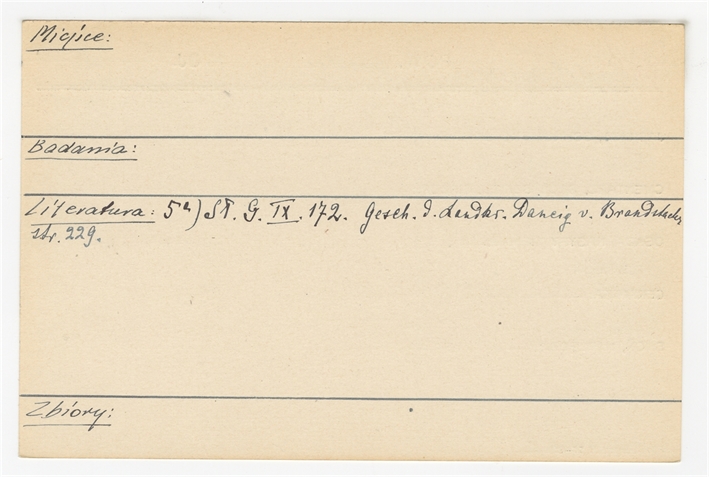 Miejsce:
Badania:
Literatura: 5ª) Sł. G. IX. 172. Gesch. d. Landkr. Danzig v. Brandstäter,
str. 229.
Zbiory: